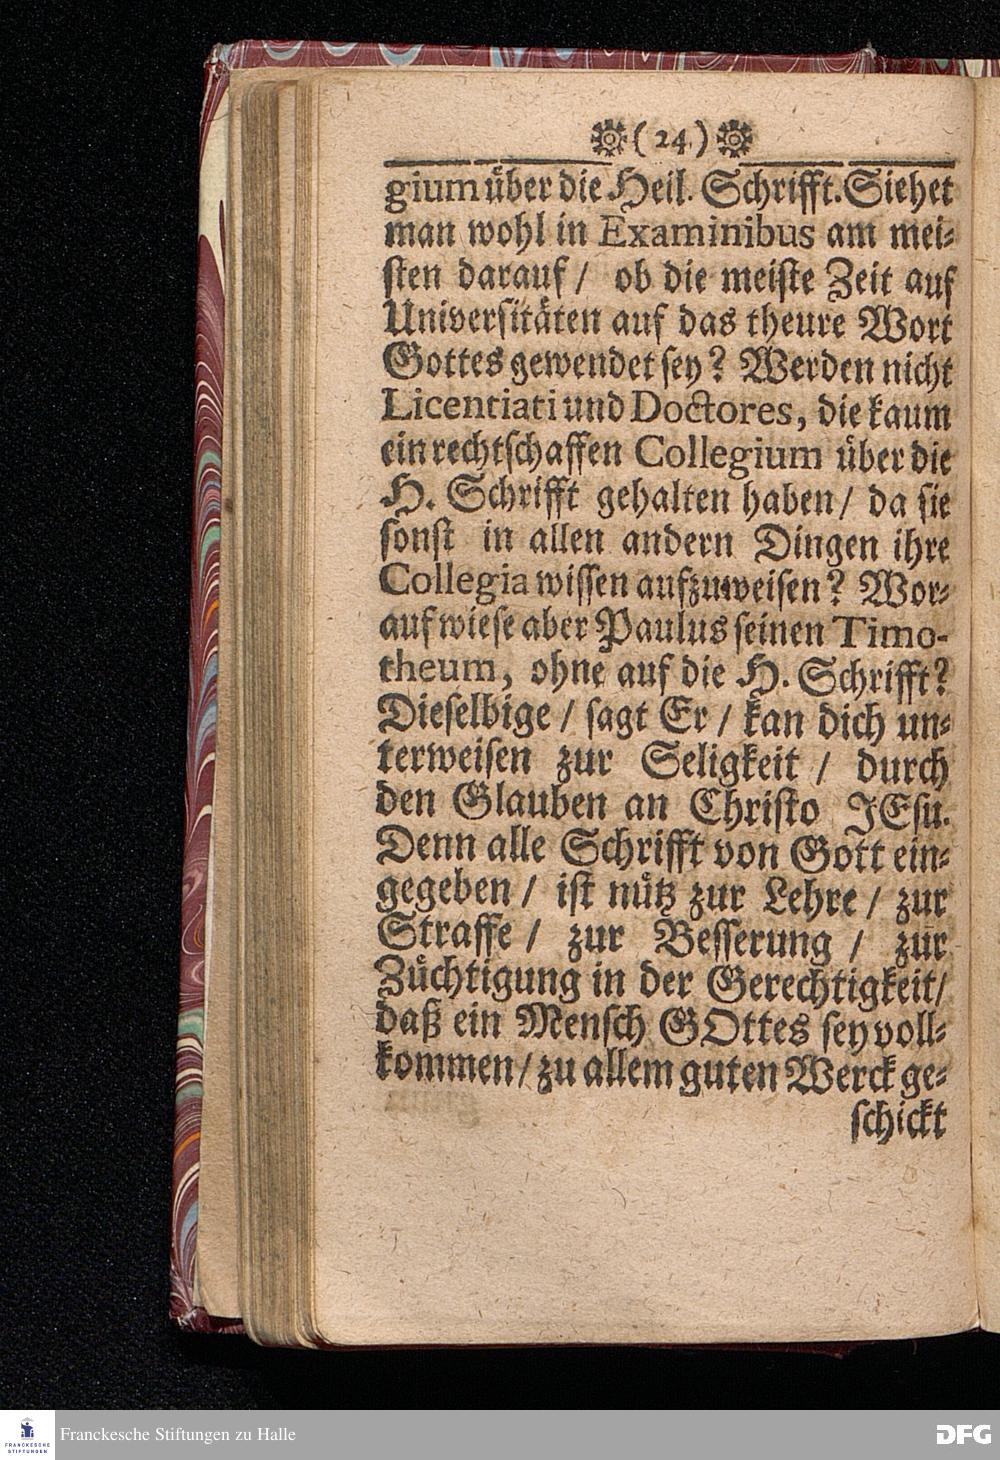 (24)
gium über die Heil. Schrifft. Siehet
man wohl in Examinibus am mei⸗
sten darauf / ob die meiste Zeit auf
Universitäten auf das theure Wort
Gottes gewendet sey? Werden nicht
Licentiati und Doctores, die kaum
ein rechtschaffen Collegium über die
H. Schrifft gehalten haben / da sie
sonst in allen andern Dingen ihre
Collegia wissen aufzuweisen? Wor⸗
auf wiese aber Paulus seinen Timo-
theum, ohne auf die H. Schrifft?
Dieselbige / sagt Er / kan dich un⸗
terweisen zur Seligkeit / durch
den Glauben an Christo JEsu.
Denn alle Schrifft von Gott ein⸗
gegeben / ist nütz zur Lehre / zur
Straffe / zur Besserung / zur
Züchtigung in der Gerechtigkeit/
daß ein Mensch GOttes sey voll⸗
kommen / zu allem guten Werck ge⸗
schickt
FRANCKESCHE
STIFTUNGEN
Franckesche Stiftungen zu Halle
DFG